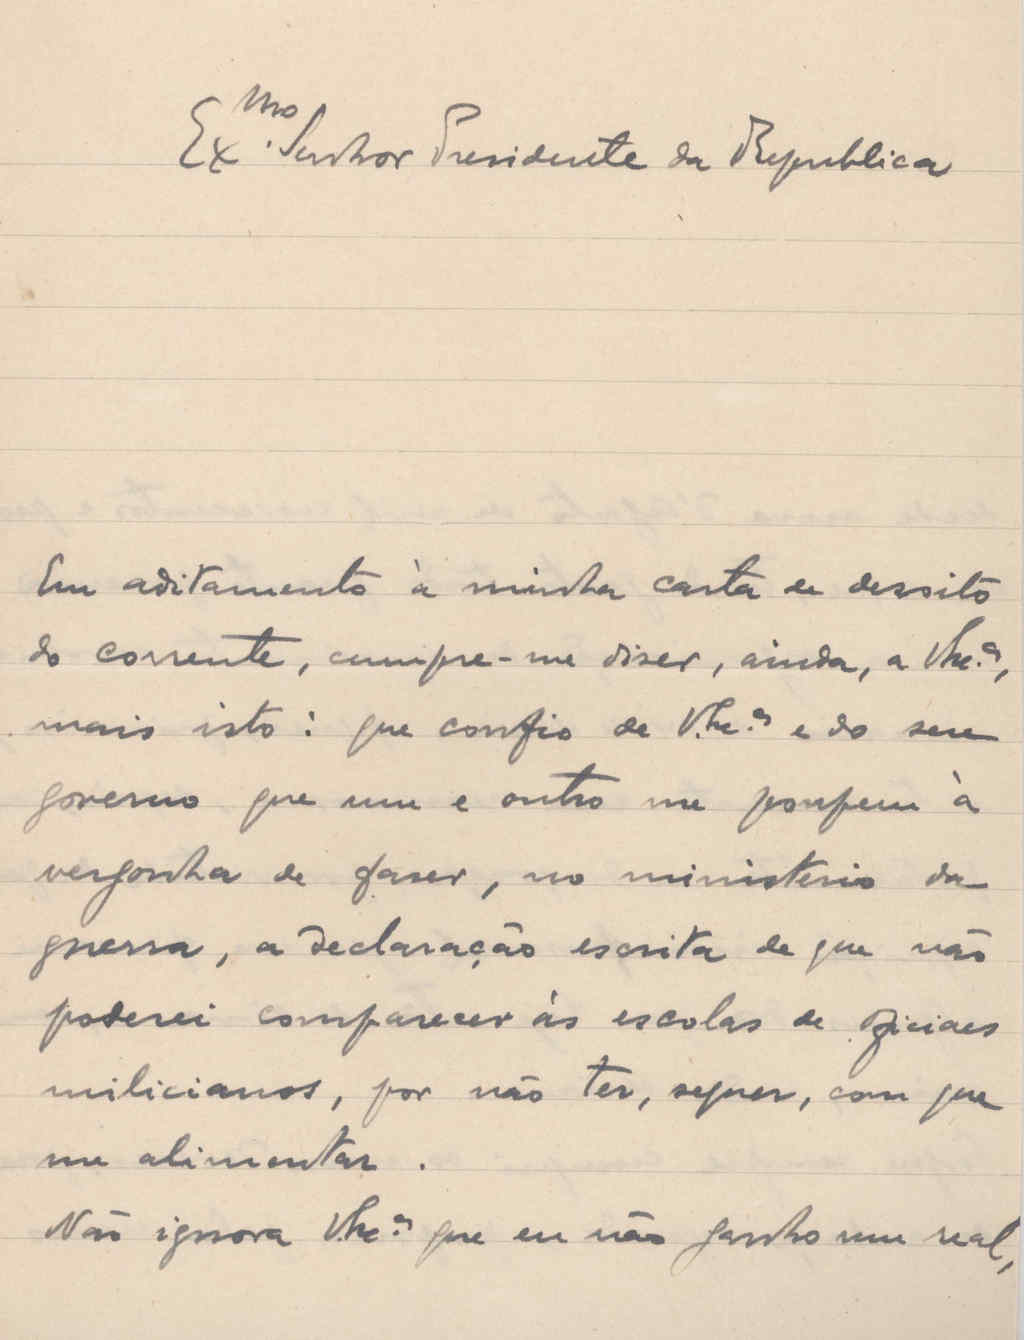 Ex.mo Senhor Presidente da Republica
Em aditamento à minha carta de desoito
do corrente, cumpre-me diser, ainda, a V.Exc.ª,
mais isto: que confio de V.Exc.ª e do seu
governo que um e outro me poupem à
vergonha de faser, no ministerio da
guerra, a declaração escrita de que não
poderei comparecer às escolas de oficiaes
milicianos, por não ter, sequer, com que
me alimentar.
Não ignora V.Exc.ª que eu não ganho um real,